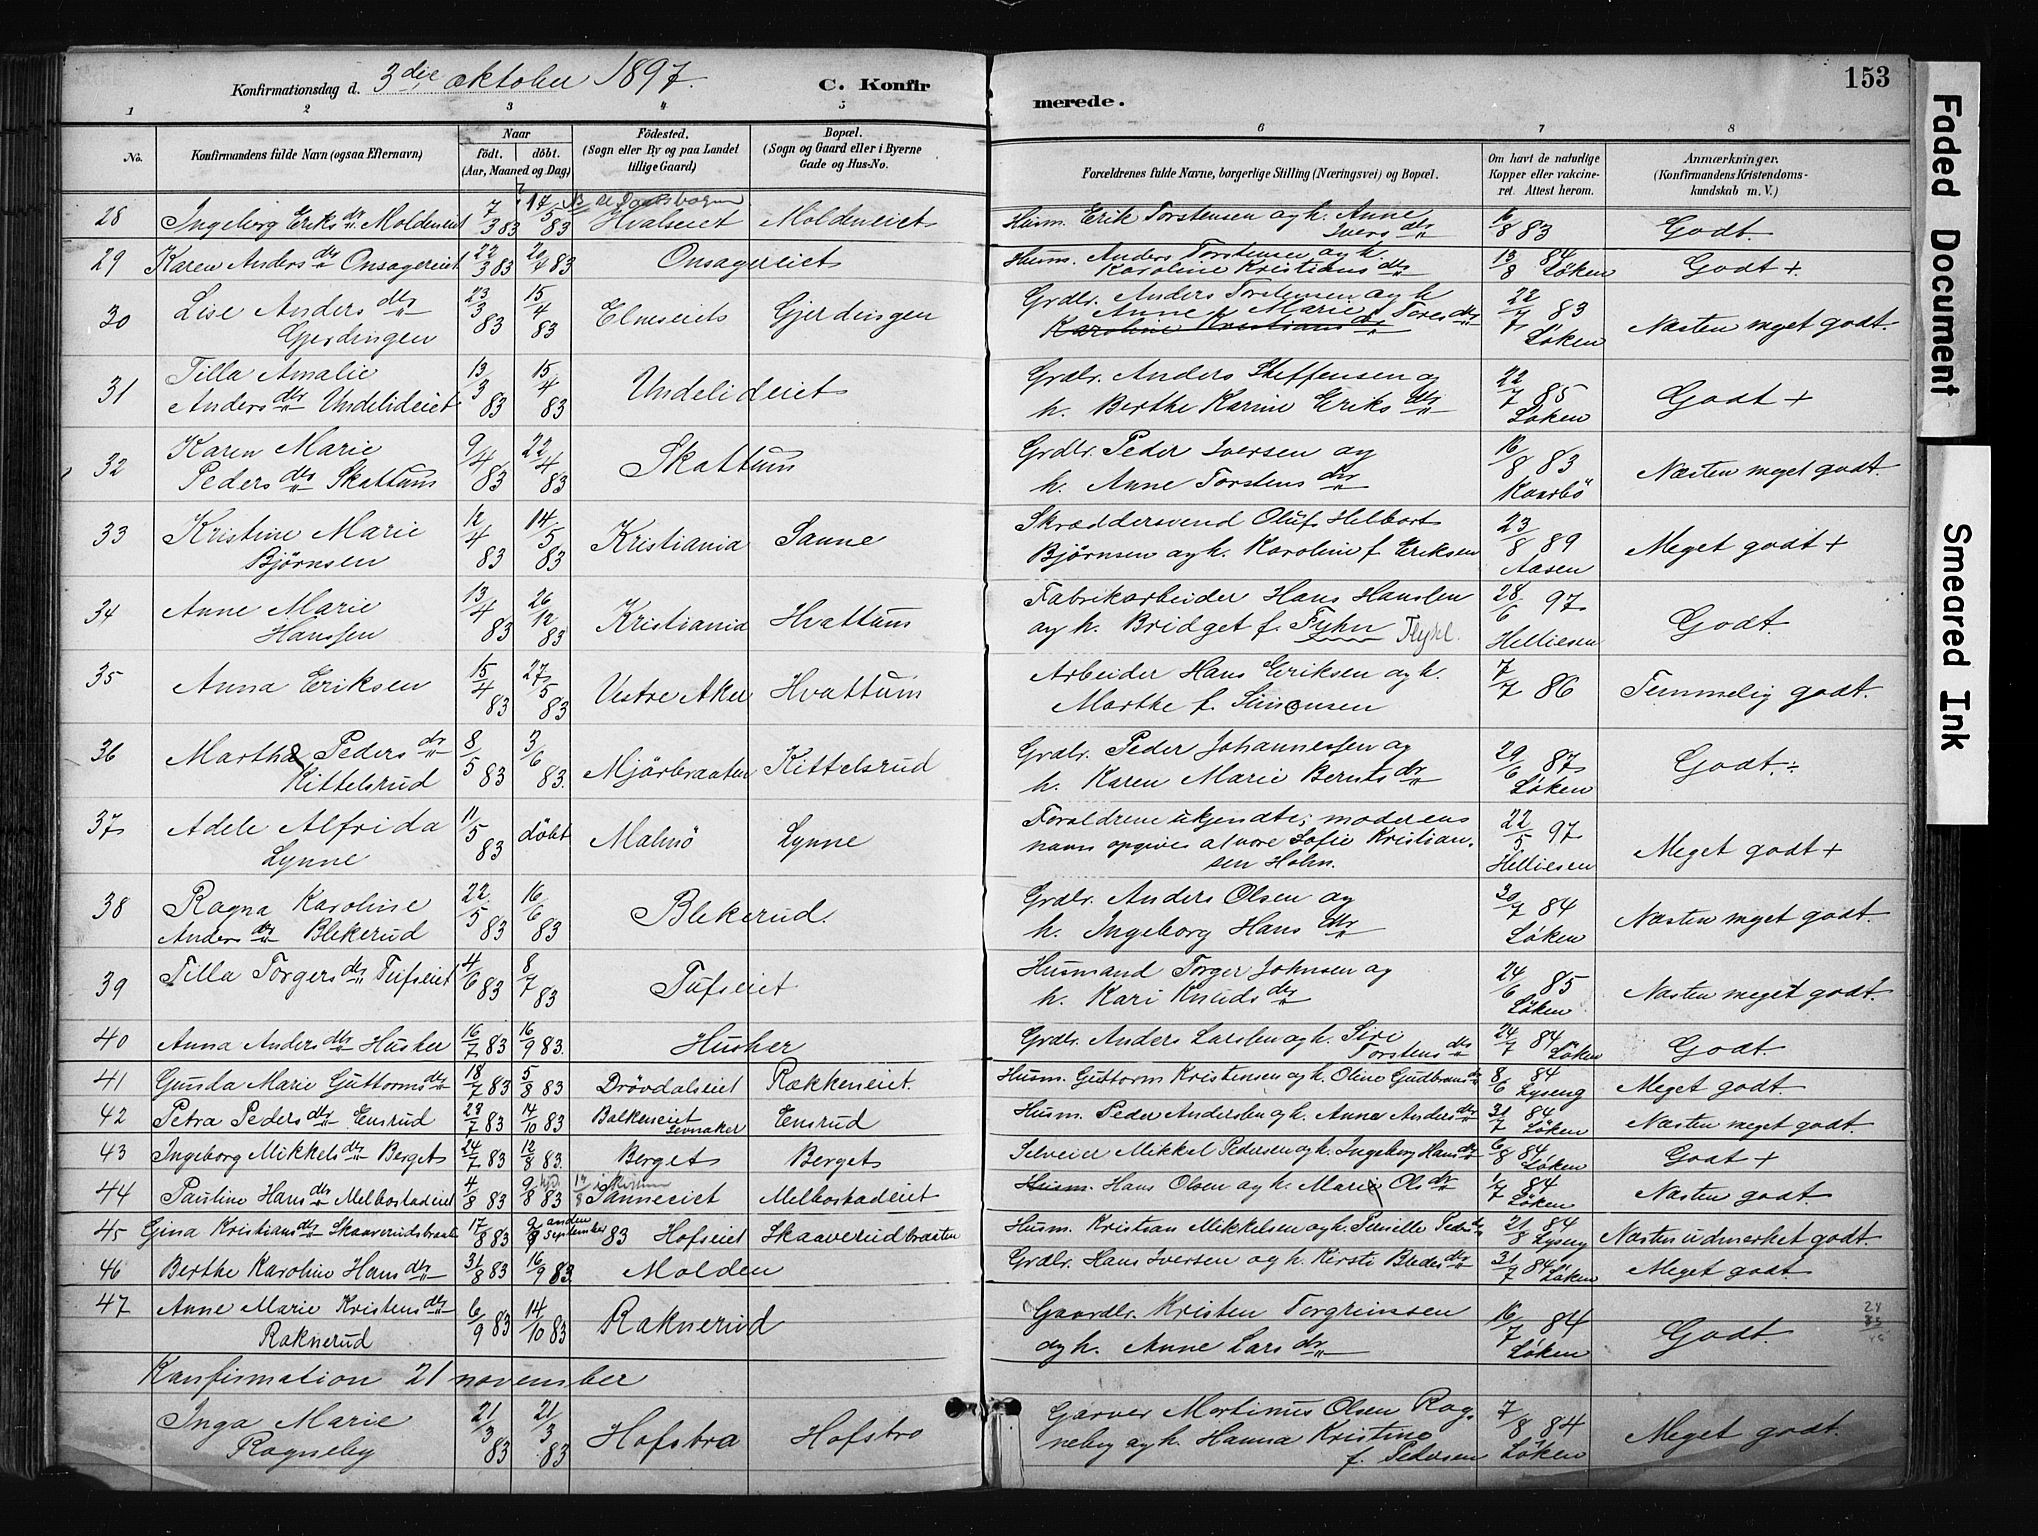 Konfirmationsdag d. 3die oktober 1897. C. Konfir
merede. 153
1 2 3 4 5 6 7 8
No. Konfirmandens fulde Navn (ogsaa Efternavn) Naar født. døbt. (Aar, Maaned og Dag) Fødested. (Sogn eller By og paa Landet tillige Gaard) Bopæl. (Sogn og Gaard eller i Byerne Gade og Hus-No. Forældrenes fulde Navne, borgerlige Stilling (Næringsvei) og Bopæl. Om havt de naturlige Kopper eller vakcineret. Attest herom. Anmærkninger. (Konfirmandens Kristendomskundskab m. V.)
28 Ingeborg Eriks dtr Moldeneiet 7/3 83 14/5 83 Hvalseiet Moldeneiet Husm. Erik Torstensen og h. Anne Ivers dtr 16/8 83 Godt.
29 Karen Anders dtr Onsagereiet 22/3 83 20/4 83 Onsagereiet Husm. Anders Torstensen og h. Karoline Kristians dtr 13/8 84 Løken Godt +
30 Lise Anders dtr Gjerdingen 23/3 83 15/4 83 Elnseiets Gjerdingen Grdbr. Anders Torstensen og h Anne Marie Tores dtr Karoline Kristians dtr 22/7 83 Løken Næsten meget godt.
31 Tilla Amalie Anders dtr Undelideiet 13/3 83 15/4 83 Undelideiet Grdbr. Anders Steffensen og h. Berthe Karine Eriks dtr 22/7 85 Løken Godt +
32 Karen Marie Peders dtr Skattum 9/4 83 22/4 83 Skattum Grdbr. Peder Iversen og h. Anne Torstens dtr 16/8 83 Kaarbø Næsten meget godt.
33 Kristine Marie Bjørnsen 12/4 83 14/5 83 Kristiania Sanne Skræddersvend Oluf Helbort Bjørnsen og h. Karoline f. Eriksen 23/8 89 Aasen Meget godt +
34 Anne Marie Hanssen 13/4 83 26/12 83 Kristiania Hvattum Fabrikarbeider Hans Hanssen og h. Bridget f. Fyhn 28/6 97 Helliesen Godt.
35 Anna Eriksen 15/4 83 27/5 83 Vestre Aker Hvattum Arbeider Hans Eriksen og h. Marthe f. Simensen 7/7 86 Temmelig godt.
36 Marthe Peders dtr Kittelsrud 8/5 83 3/6 83. Mjørbraaten Kittelsrud Grdbr. Peder Johannessen og h. Karen Marie Bernts dtr 29/6 87 Løken Godt ÷
37 Adele Alfrida Lynne 11/5 83 døbt Malmö Lynne Forældrene ukjendte; moderens navn opgives at være Sofie Kristiansen Holm. 22/5 97 Helliesen Meget godt +
38 Ragna Karoline Anders dtr Blekerud 22/5 83 16/6 83 Blekerud. Grdbr. Anders Olsen og h. Ingeborg Hans dtr 30/7 84 Løken Næsten meget godt.
39 Tilla Torgers dtr Tufseiet 4/6 83 8/7 83 Tufseiet Husmand Torger Johnsen og h. Kari Knuds dtr 24/6 85 Løken Næsten meget godt.
40 Anna Anders dtr Husker 16/7 83 16/9 83. Husker Grdbr. Anders Larssen og h. Siri Torstens dtr 24/7 84 Løken Godt.
41 Gunda Marie Guttorms dtr 18/7 83 5/8 83 Drøvdalseiet Rækkeneiet. Husm. Guttorm Kristensen og h. Oline Gudbrans dtr 8/6 84 Lyseng Meget godt.
42 Petra Peders dtr Ensrud 23/7 83 14/10 83 Balkeneiet Jevnaker Ensrud Husm. Peder Anderssen og h. Anne Anders dtr 31/7 84 Løken Næsten meget godt.
43 Ingeborg Mikkels dtr Berget 24/7 83 12/8 83. Berget Berget Selveier Mikkel Pedersen og h. Ingeborg Hans dtr 6/8 84 Løken Godt +
44 Pauline Hans dtr Melbostadeiet 4/8 83 9/8 83 Sanneeiet Melbostadeiet Husm. Hans Olsen og h. Marie Ols dtr 1/7 84 Løken Næsten godt.
45 Gina Kristians dtr Skaaverudbraaten 17/8 83 9/9 anden September 83 Hofseiet Skaaverudbraaten Husm. Kristian Mikkelsen og h. Pernille Peders dtr 21/8 84 Lyseng Næsten udmerket godt.
46 Berthe Karoline Hans dtr 31/8 83 16/9 83. Molden Grdbr. Hans Iversen og h. Kirsti Peders dtr 31/7 84 Løken Meget godt.
47 Anne Marie Kristens dtr Raknerud 6/9 83 14/10 83 Raknerud Gaardbr. Kristen Torgrimsen og h. Anne Lars dtr 16/7 84 Løken Godt.
Konfirmation 21 november
Inga Marie Rogneby 21/3 83 21/3 83 Hofsbra Hofsbro Garver Martinus Olsen Rogneby og h. Hanna Kristine f. Pedersen 7/8 84 Løken Meget godt.
Faded Document
Smeared Ink